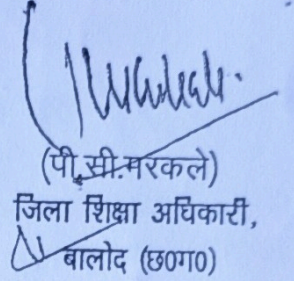 (पी.सी.मरकले)
जिला शिक्षा अधिकारी,
बालोद (छ0ग0)